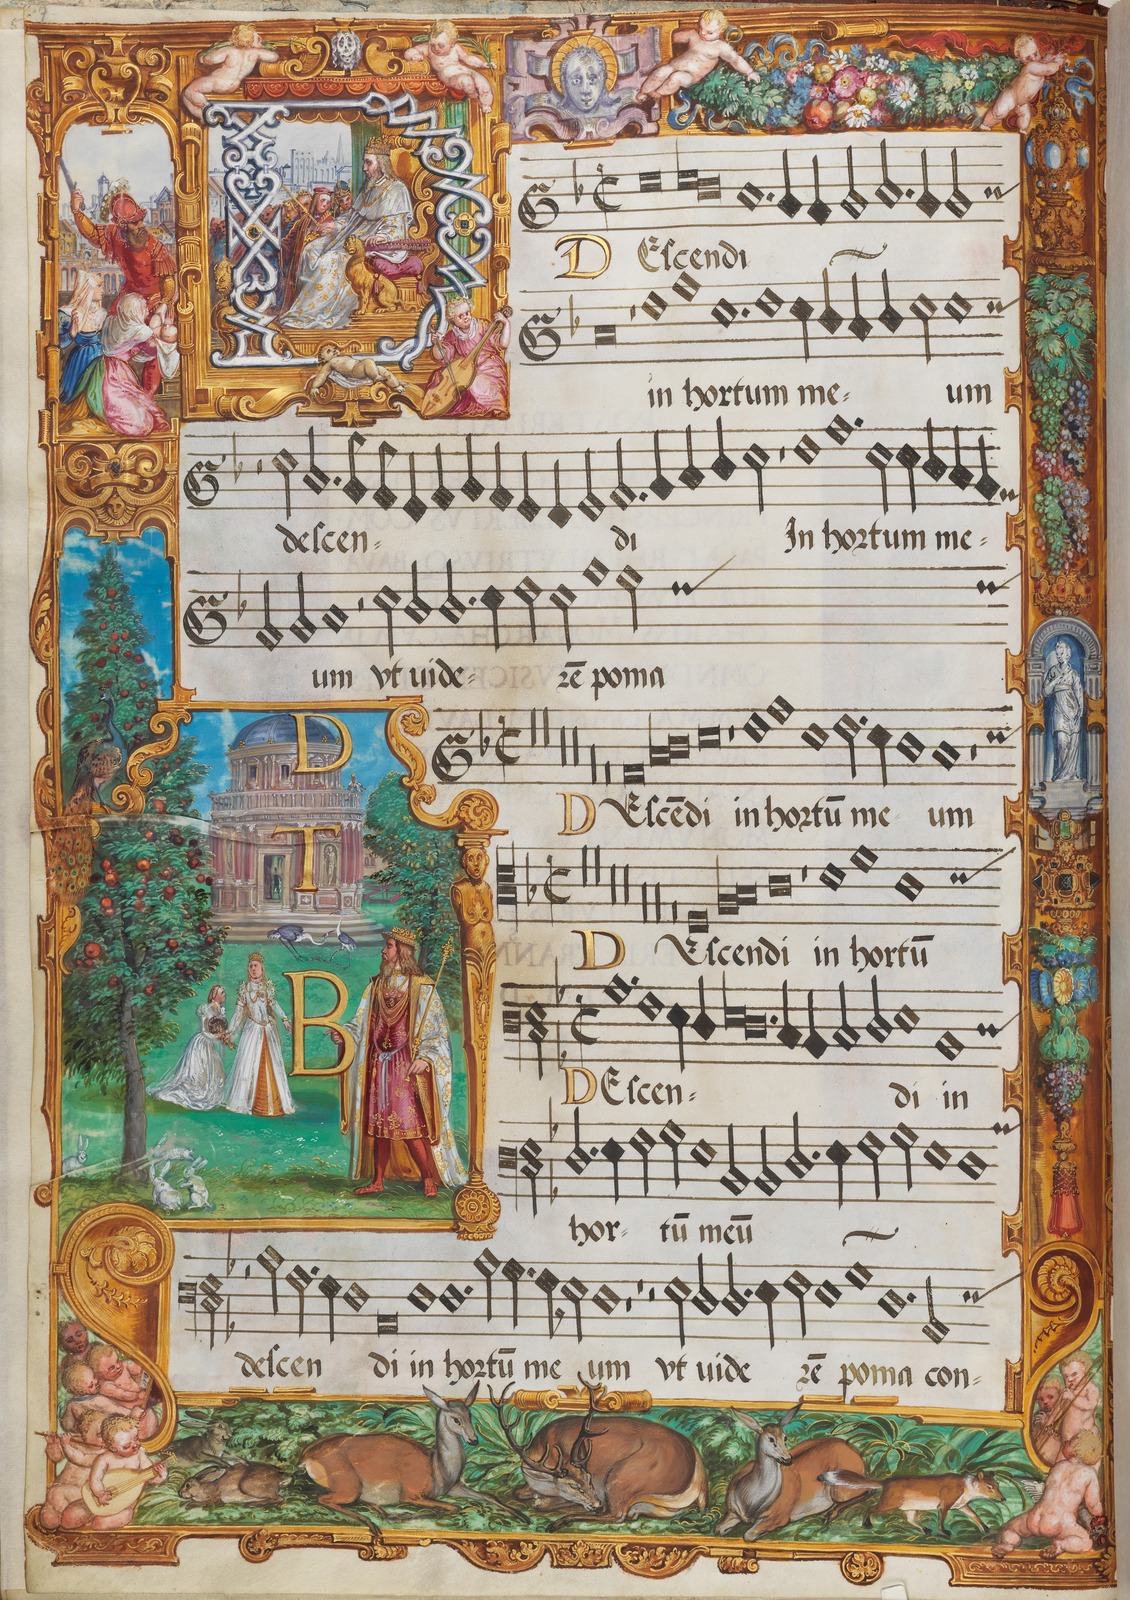 D Escendi
in hortum me= um
descen= di In hortum me=
um vt uide= rē poma
D
D Escēdi in hortū me um
T
D Escendi in hortū
B
DEscen= di in
hor= tū meū
descen di in hortū me um vt uide rē poma con=